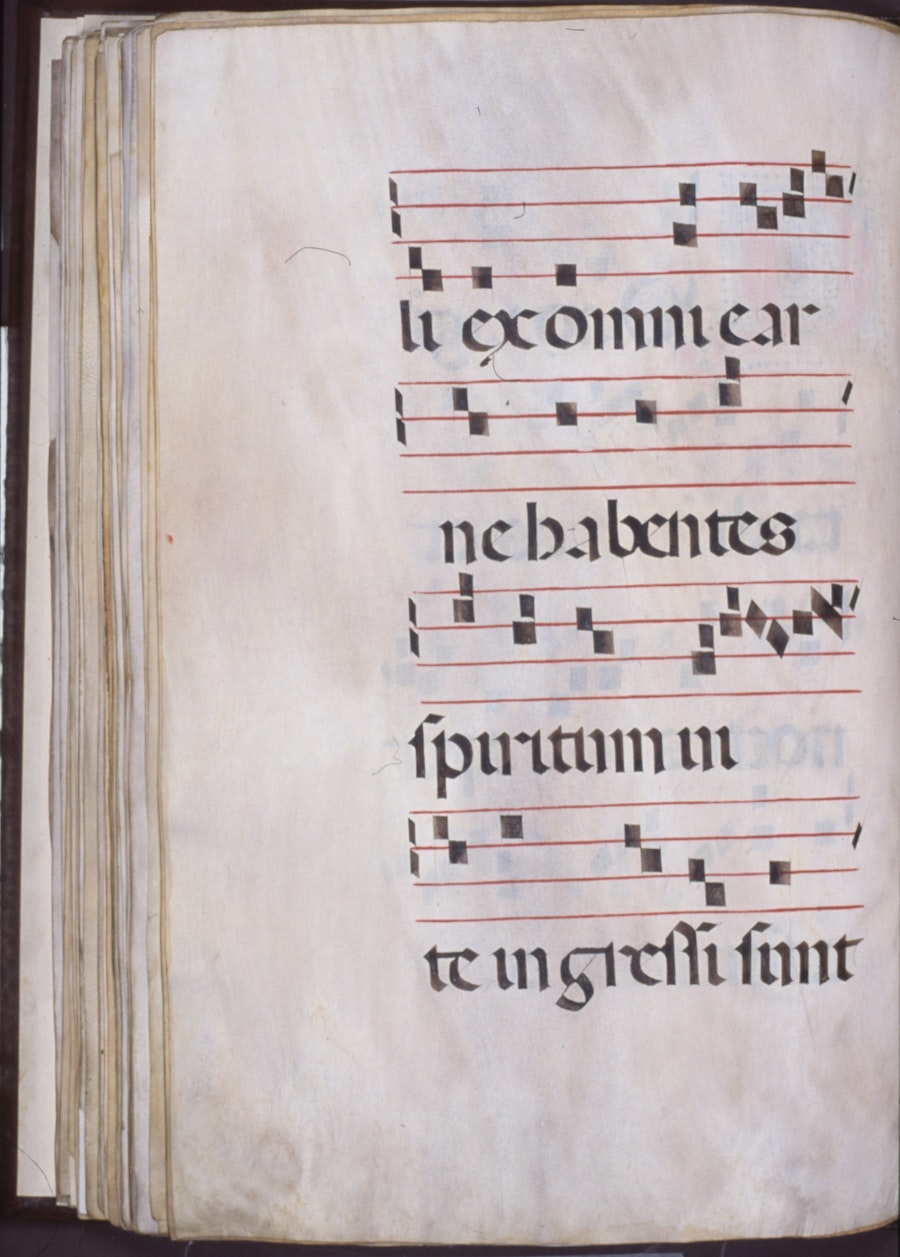 li ex omni car
ne habentes
spiritum ui
te in gressi sunt